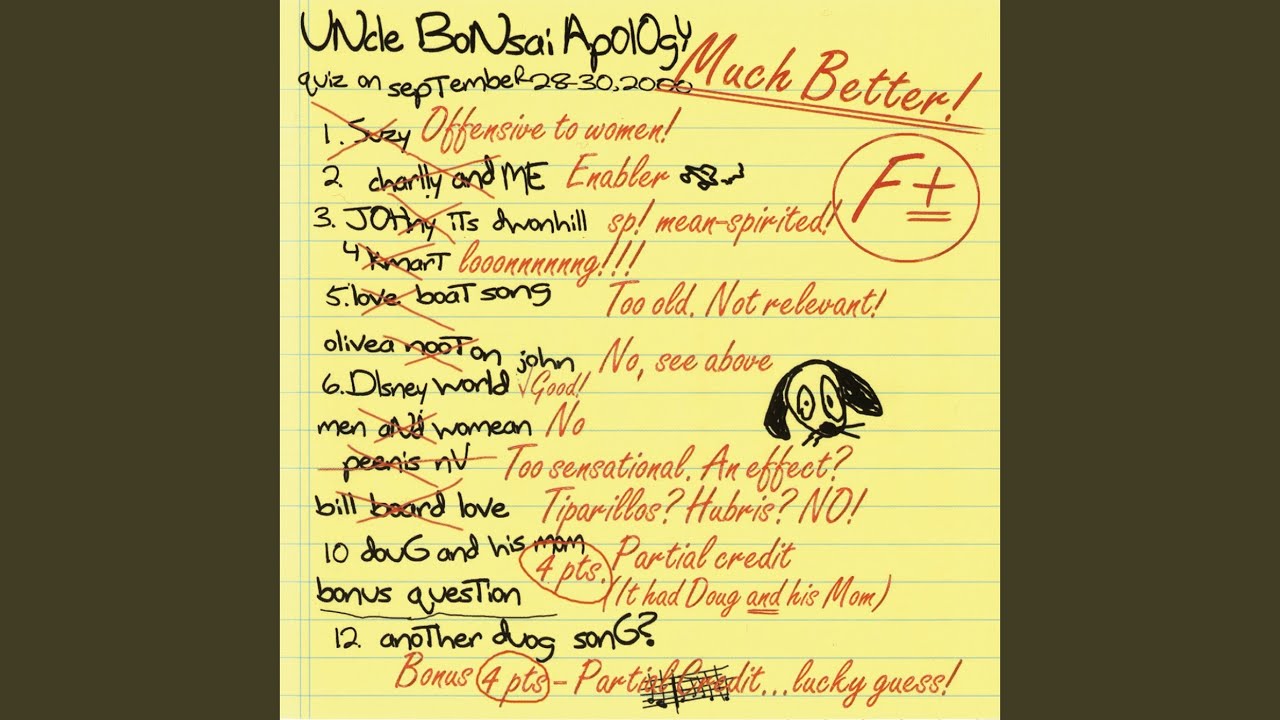 UNcle BoNsai ApolOgy
Much Better!
quiz on sepTember 28-30, 2000
F±
1. Suzy Offensive to women!
2 charlly and ME Enabler
3. JOHNy iTs dwonhill sp! mean-spirited!
4 KmarT looonnnnnng!!!
5. love boaT song Too old. Not relevant!
olivea nooT on john No, see above
6. DIsney world √Good!
men aNd womean No
peenis nV Too sensational. An effect?
bill board love Tiparillos? Hubris? NO!
10 douG and his mom 4 pts. Partial credit
bonus quesTion (It had Doug and his Mom)
12 anoTher duog sonG?
Bonus 4 pts - Partial Credit... lucky guess!